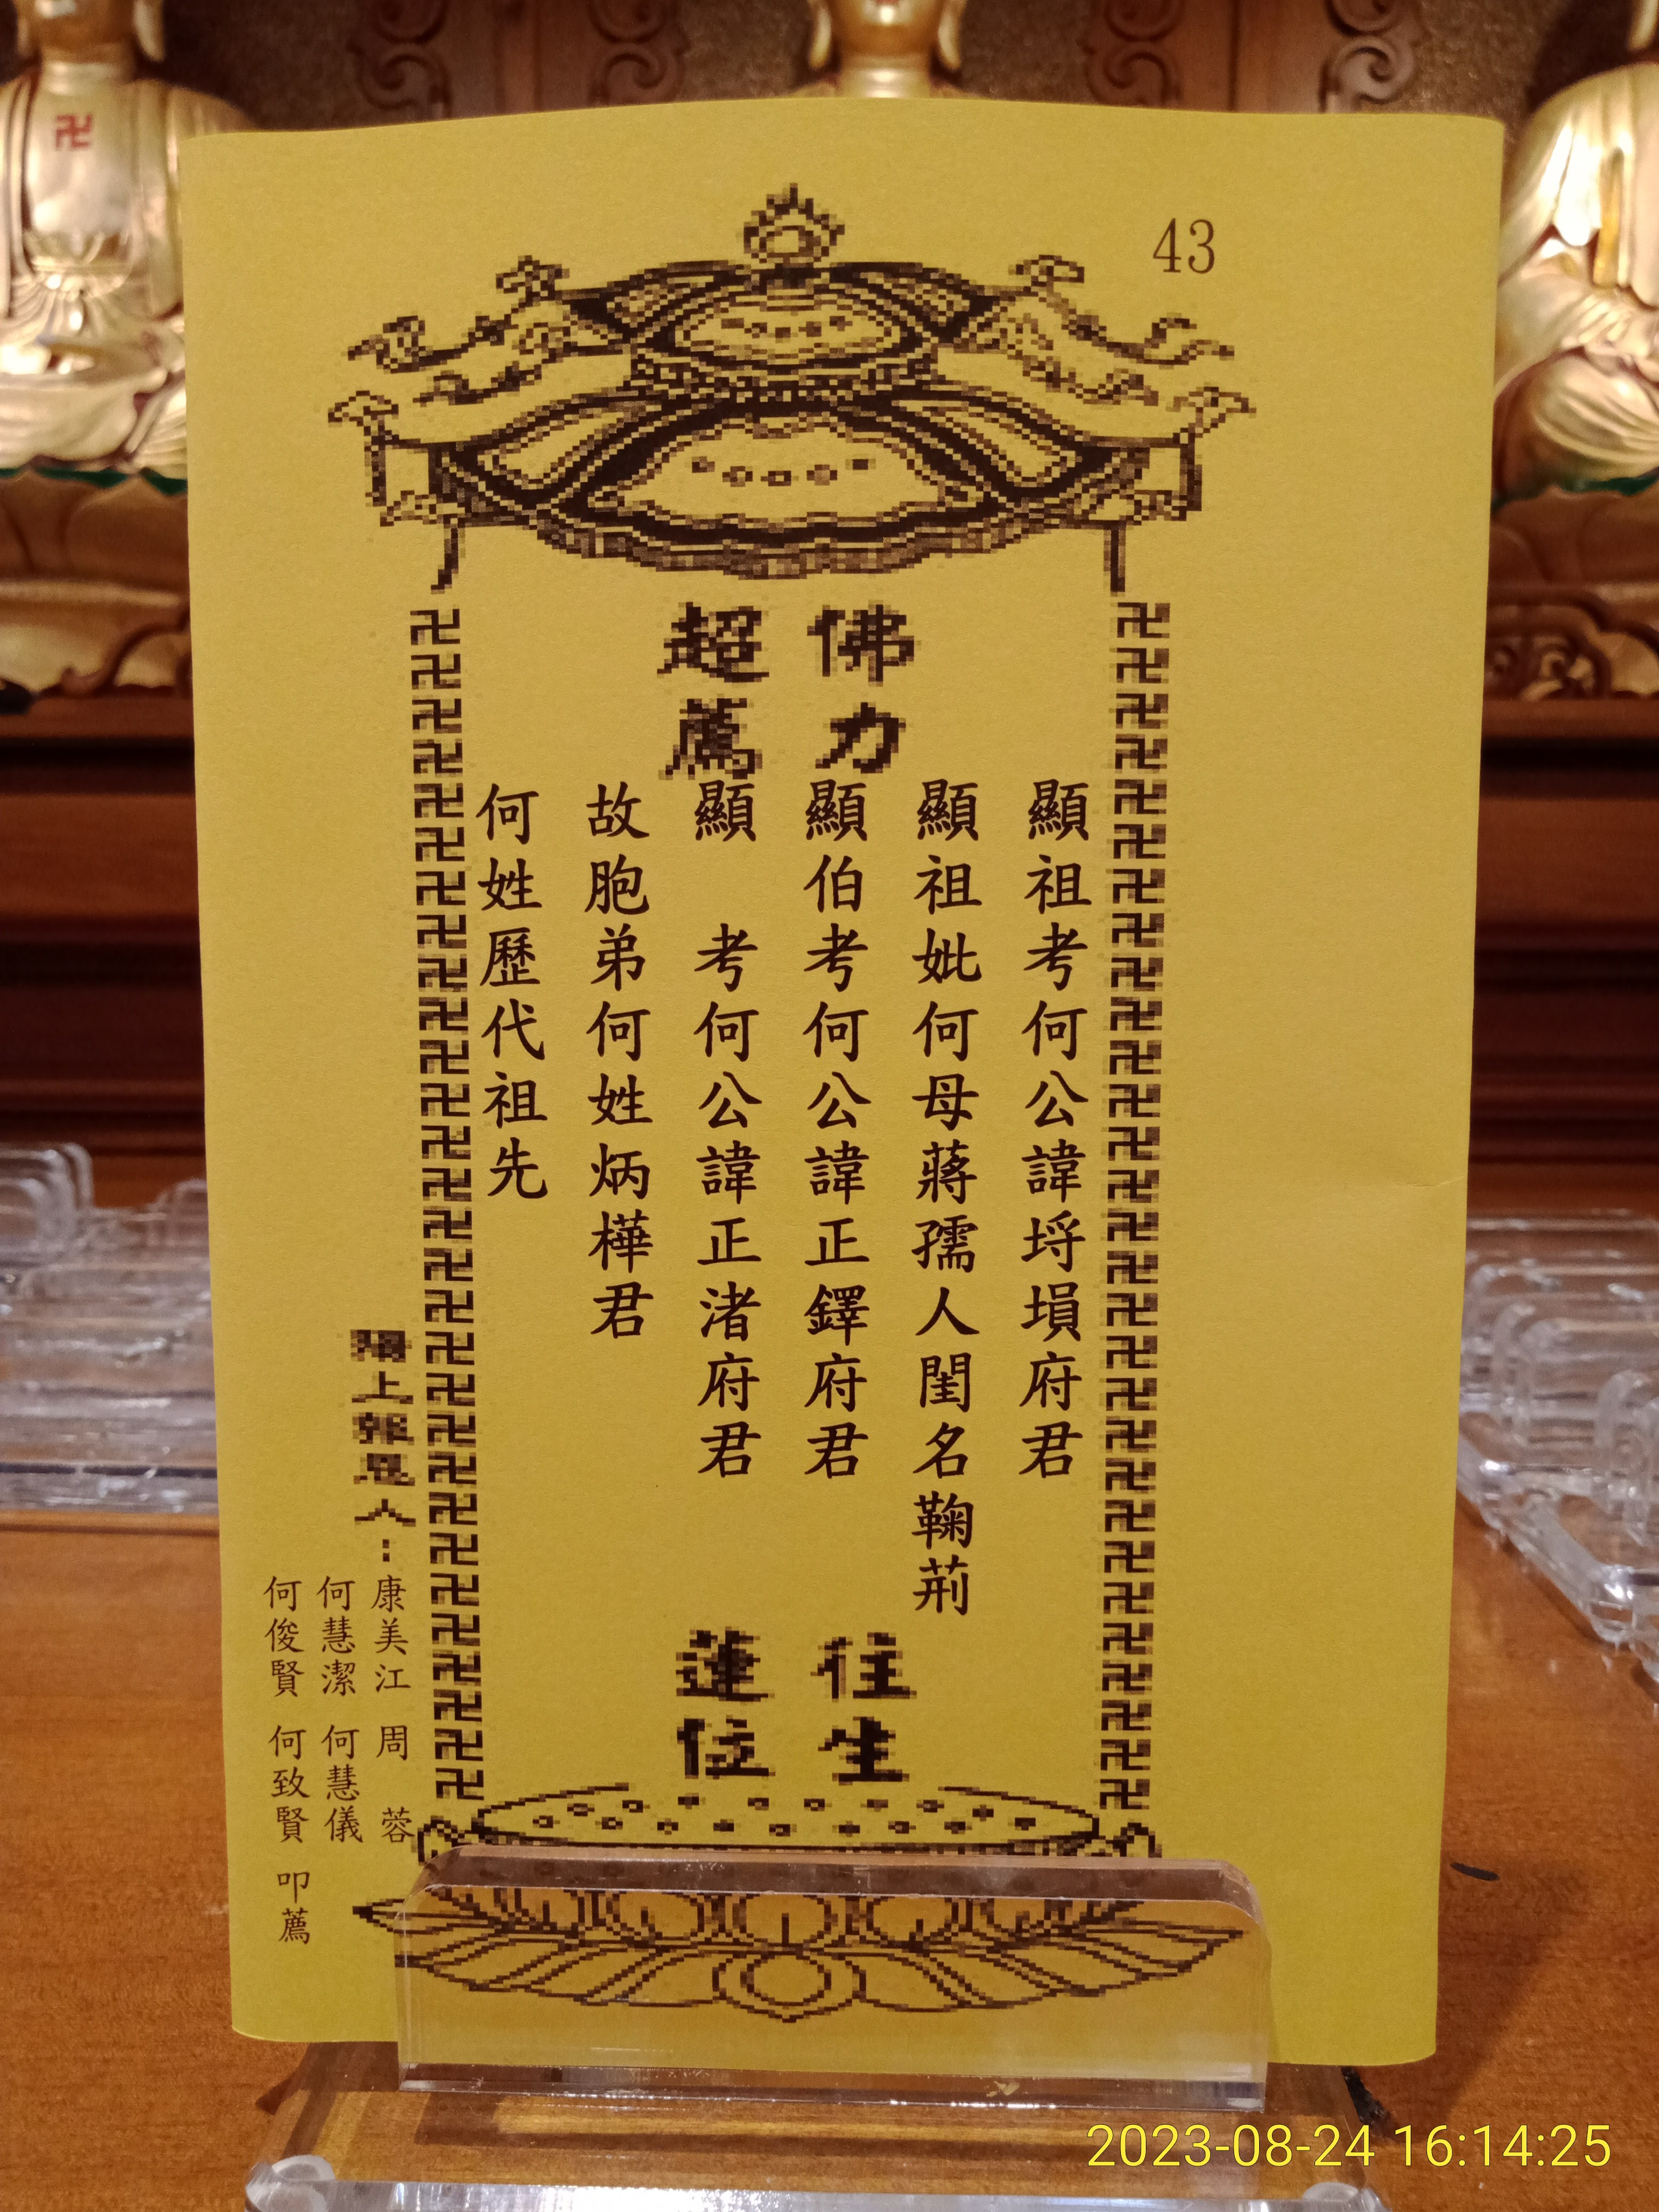 43
佛力
超薦
顯祖考何公諱埒塤府君
顯祖妣何母蔣孺人閨名鞠荊
顯伯考何公諱正鐸府君
顯 考何公諱正渚府君
故胞弟何姓炳樺君
何姓歷代祖先
往生
蓮位
陽上報恩人：
康美江 周 蓉
何慧潔 何慧儀
何俊賢 何致賢 叩薦
2023-08-24 16:14:25